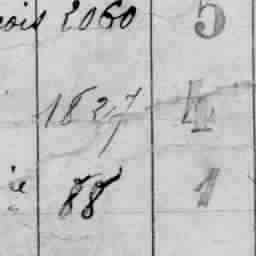 ois 2060 5
1827 4
ie 88 1